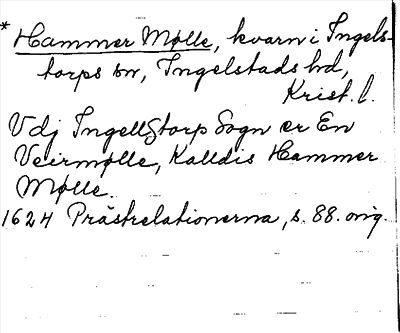 * Hammer Mølle, kvarn i Ingels-
torps sn, Ingelstads hd,
Krist. l.
Vdj Ingellstorp Sogn er En
Veirmølle, Kalldis Hammer
Mølle.
1624 Prästrelationerna, s. 88. orig.